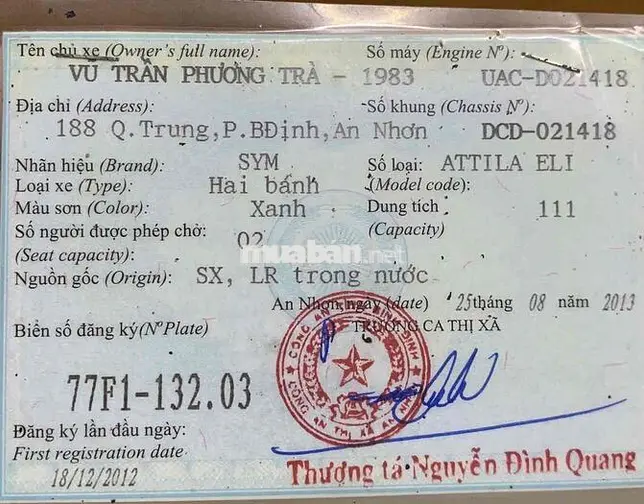 Tên chủ xe (Owner's full name): Số máy (Engine Nº):
VŨ TRẦN PHƯƠNG TRÀ - 1983 UAC-D021418
Địa chỉ (Address): Số khung (Chassis Nº):
188 Q.Trung,P.BĐịnh,An Nhơn DCD-021418
Nhãn hiệu (Brand): SYM Số loại: ATTILA ELI
Loại xe (Type): Hai bánh (Model code):
Màu sơn (Color): Xanh Dung tích 111
Số người được phép chở: 02 (Capacity)
(Seat capacity):
muaban.net
Nguồn gốc (Origin): SX, LR trong nước
An Nhơn, ngày (date) 25 tháng 08 năm 2013
Biển số đăng ký(NºPlate) TRƯỞNG CA THỊ XÃ
77F1-132.03
CÔNG AN THỊ XÃ AN
Đăng ký lần đầu ngày:
First registration date
18/12/2012
Thượng tá Nguyễn Đình Quang